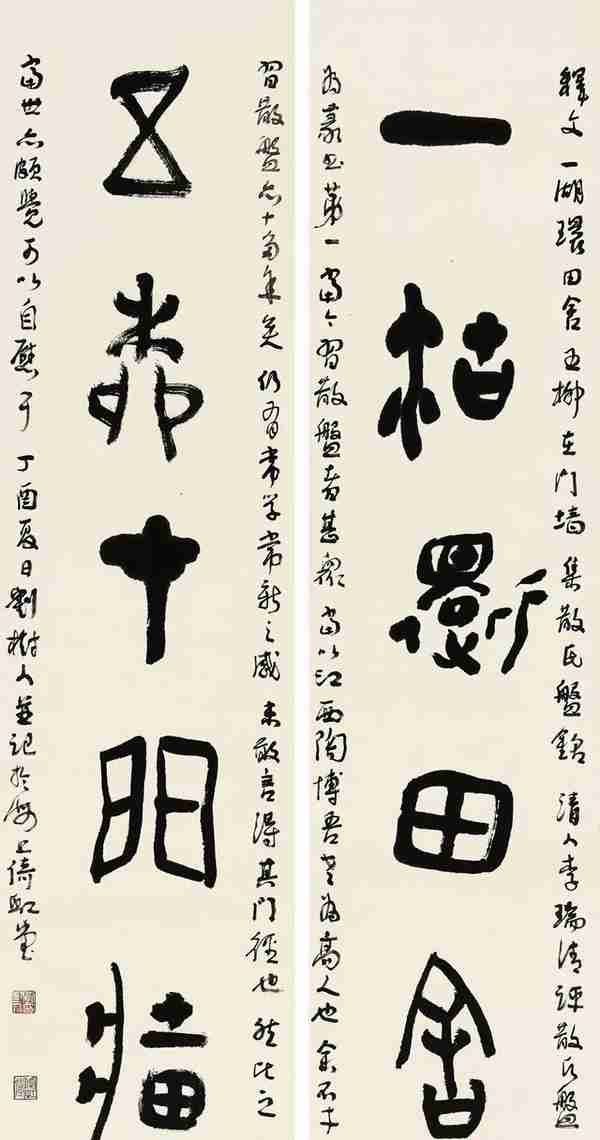 釋文 一湖環田舍 五柳在门墙 集散氏盤銘 清人李瑞清評散氏盤
一湖環田舍
為篆書第一 當今習散盤者甚衆 當以江西陶博吾老為高人也 余不才
習散盤亦十多年矣 仍有常学常新之感 未敢言得其门徑也 然比之
五柳在門牆
當世亦頗覺可以自慰耳 丁酉夏日劉樹人並記於海上倚虹堂